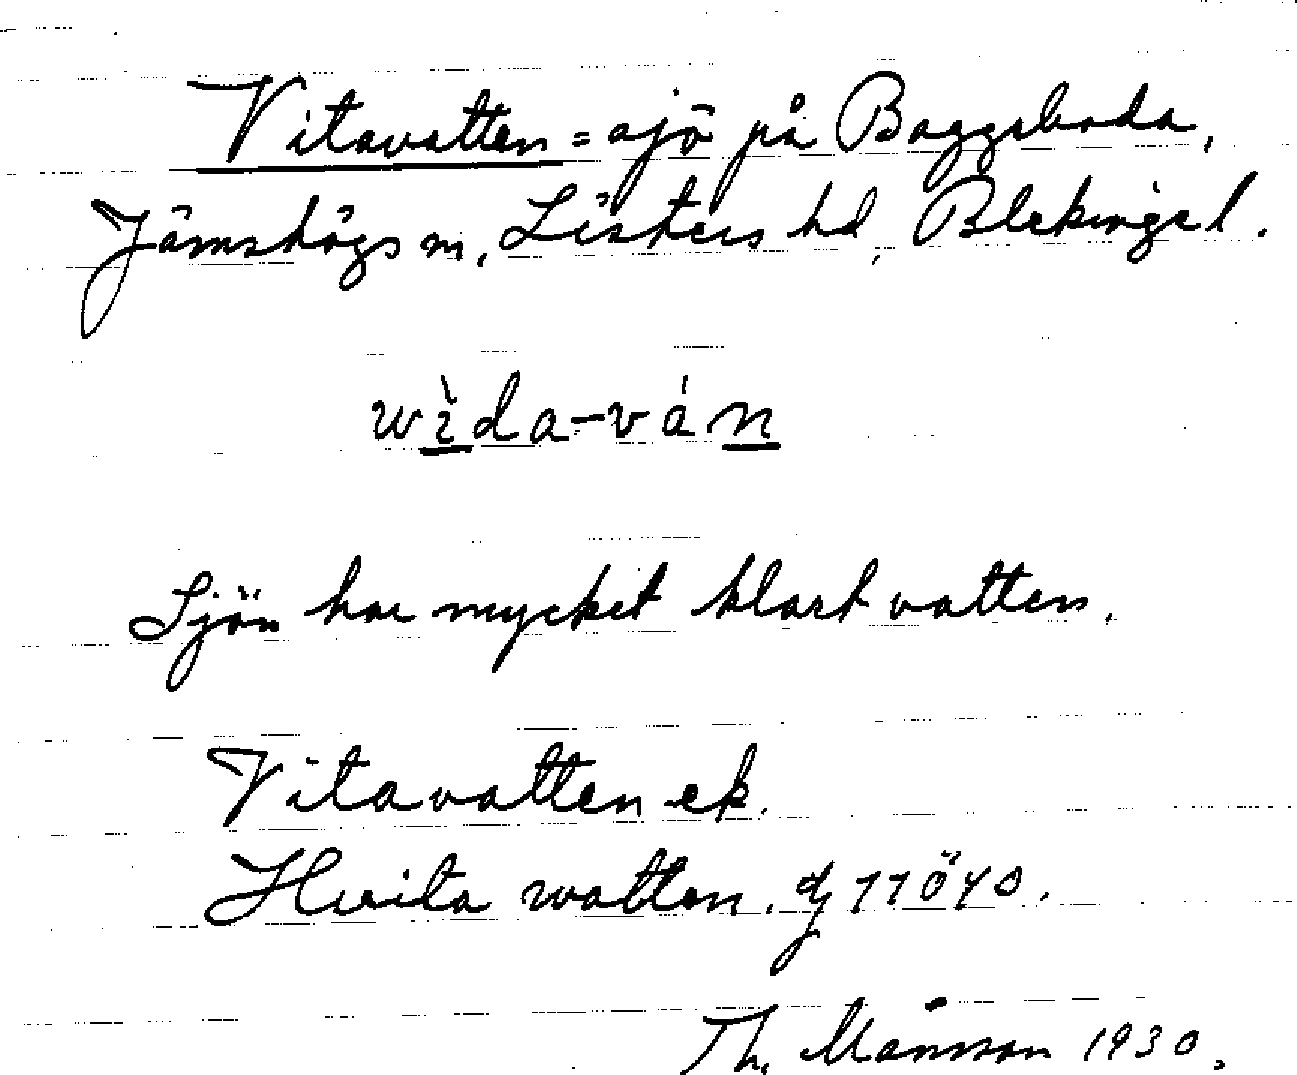 Vitavatten = sjö på Baggaboda,
Jämshögs sn, Listers hd, Blekinge l.
wìda-ván
Sjön har mycket klart vatten.
Vitavatten ek.
Hvita watten. dj 11ö40.
Th. Månsson 1930.